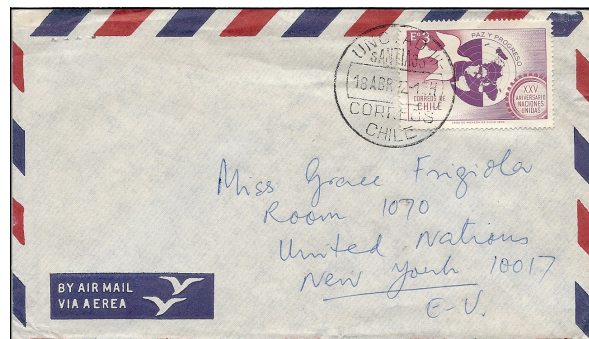 UNCTAD III
SANTIAGO
18 ABR 72
CORREOS
CHILE
E°3
PAZ Y PROGRESO
CORREOS DE
CHILE
XXV
ANIVERSARIO
NACIONES
UNIDAS
Miss Grace Frigiola
Room 1070
United Nations
New York 10017
E-U.
BY AIR MAIL
VIA AEREA